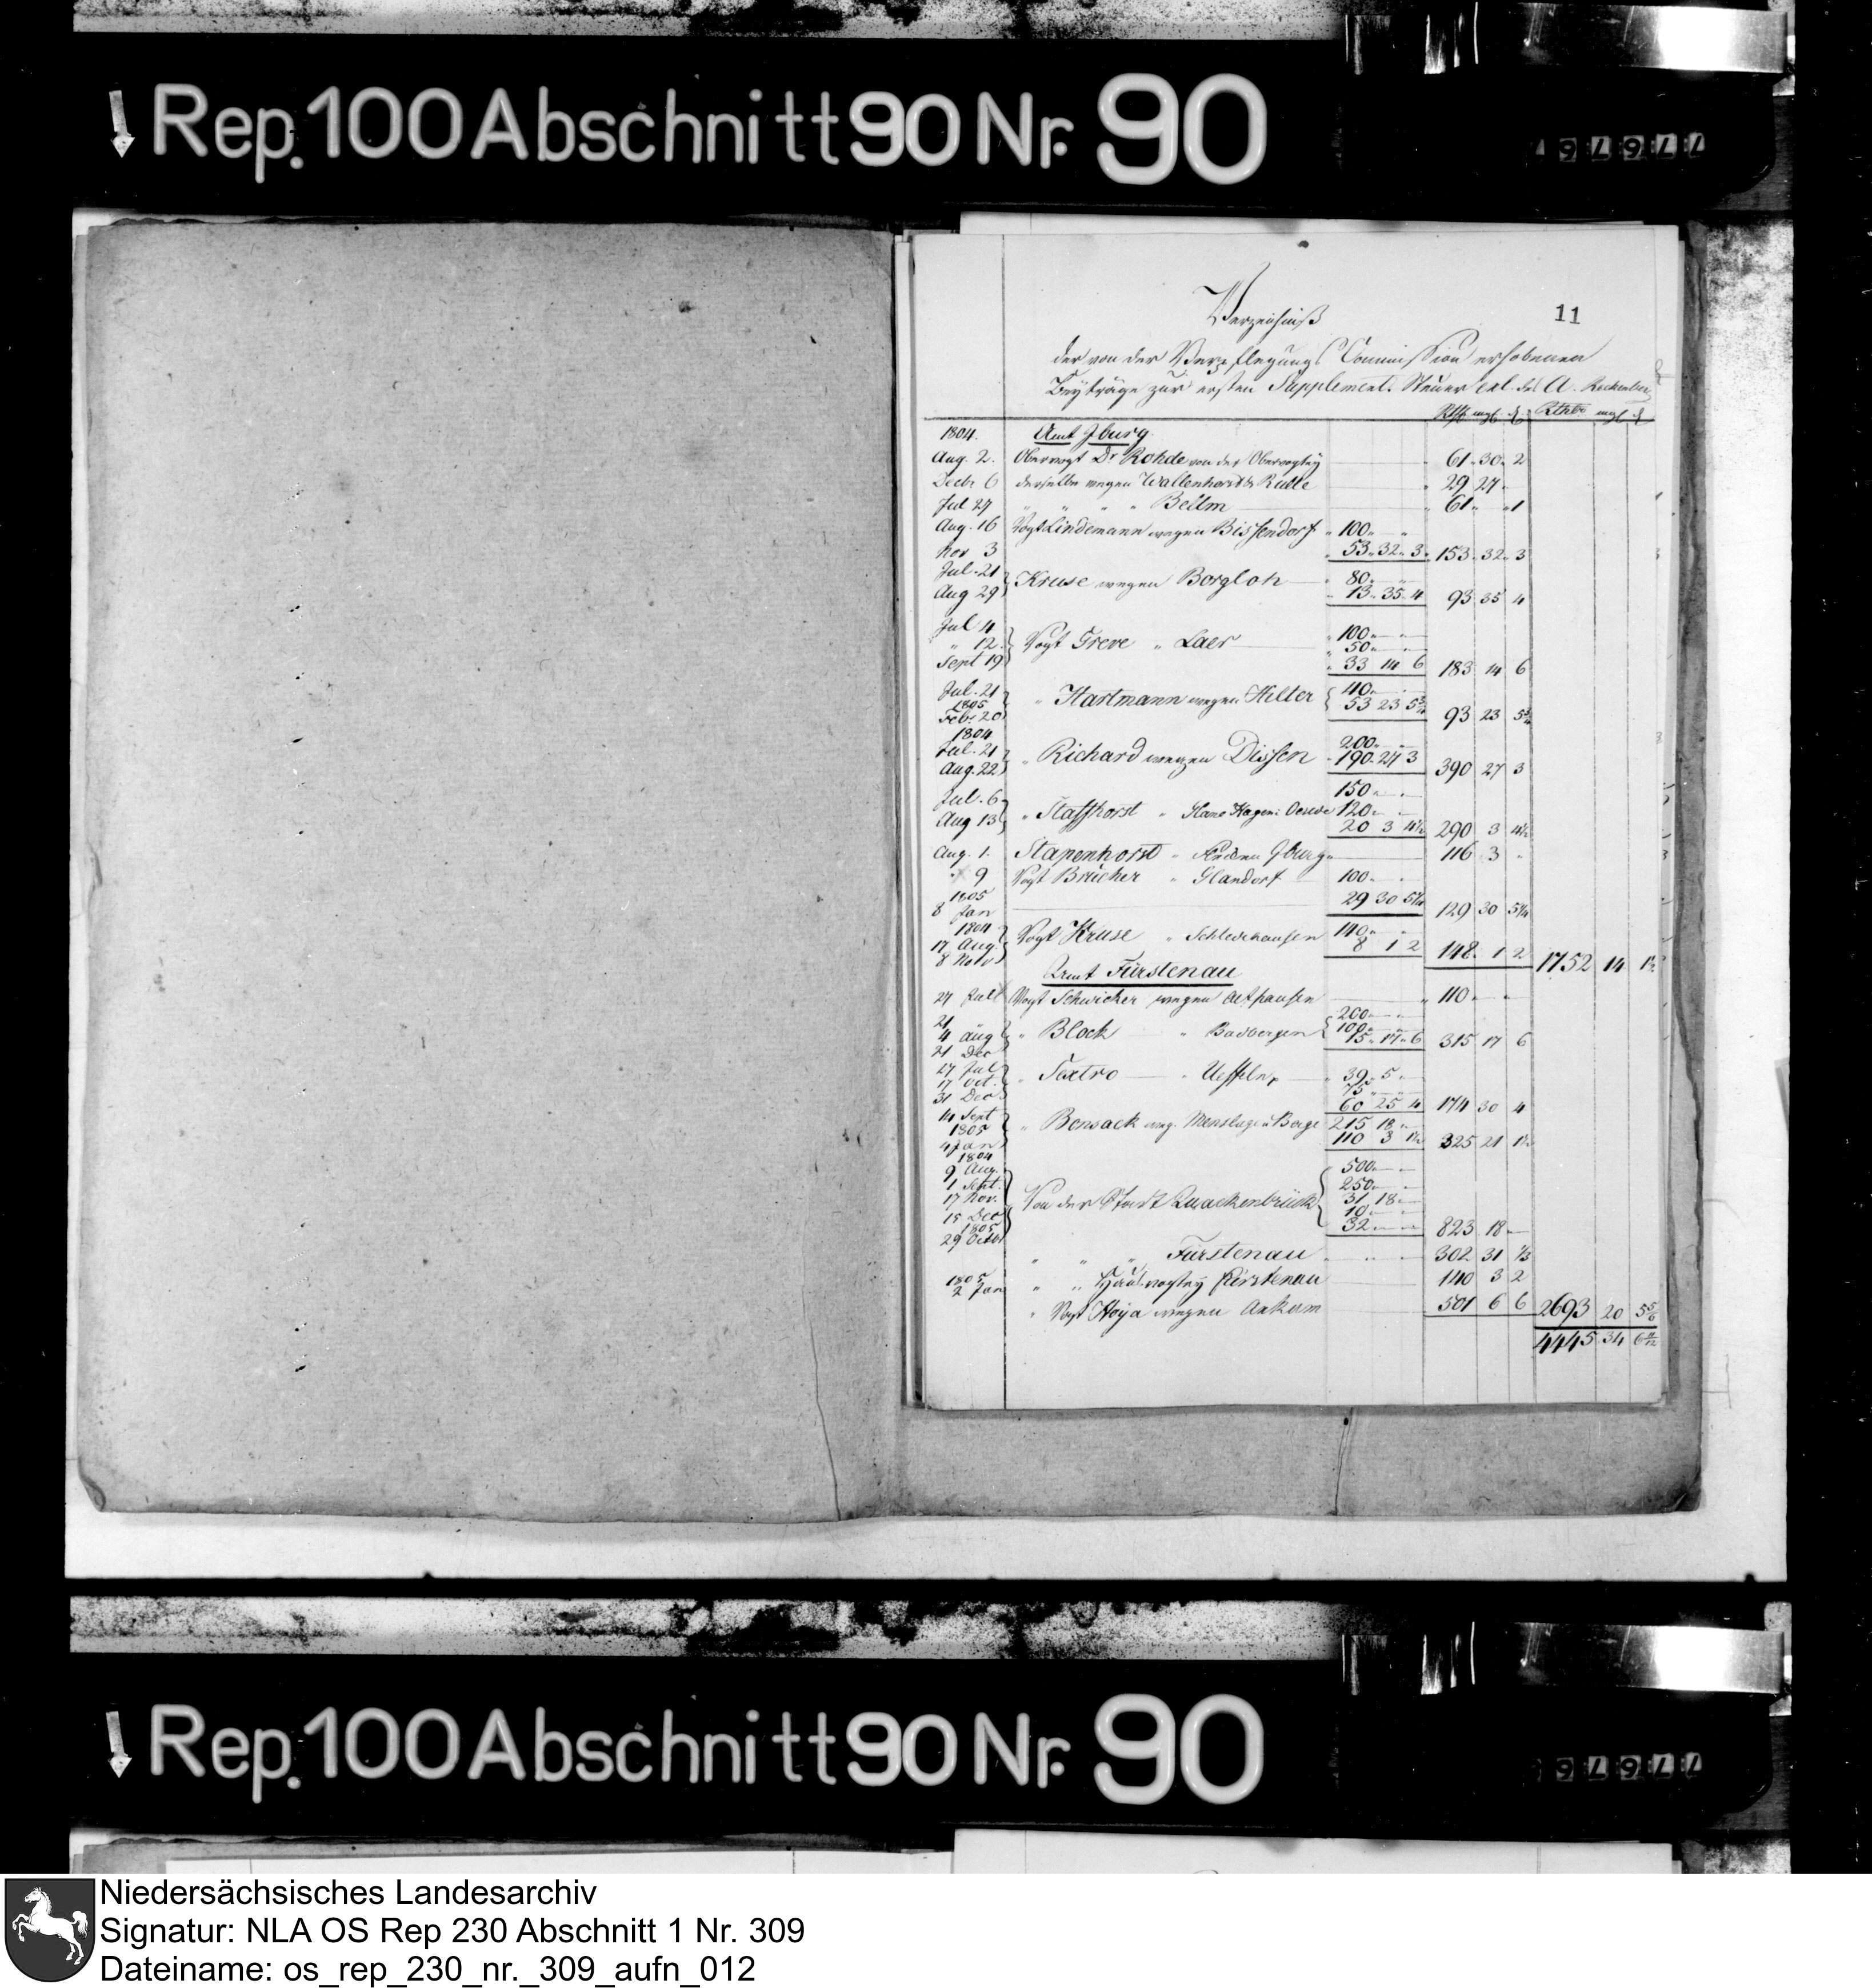 Rep. 100 Abschnitt 90 Nr. 90
77679
11
Verzeichniß
der von der Verpflegungs Commission erhobenen
Beyträge zur ersten Supplement. Steuer excl. des A. Reckenberg
Rthlr mgl ₰ Rthlr mgl ₰
1804. Amt Iburg
Aug. 2. Obervogt Dr Rohde von der Obervogtey 61 30 2
Decbr 6 derselbe wegen Wallenhorst & Rulle 29 27
Jul 27 " " " Bellm 61 " 1
Aug. 16 Vogt Lindemann wegen Bissendorf 100
Nov 3 53 32 3 153 32 3
Jul. 21 Kruse wegen Borgloh 80
Aug 29 13 35 4 93 35 4
Jul 4 100
" 12 Vogt Greve " Laer 50
Sept 19 33 14 6 183 14 6
Jul. 21 " Hartmann wegen Hilter 40
1805
Febr 20 53 23 5¾ 93 23 5¾
1804
Jul. 21 " Richard wegen Dissen 200
Aug. 22 190 27 3 390 27 3
Jul. 6 150
Aug 13 " Stahlhorst " Hagen 120
20 3 4½ 290 3 4½
Aug. 1. Stapenhorst " Iburg 116 3
" 9 Vogt Brücher " Glandorf 100
1805
8 Jan 29 30 5¼ 129 30 5¼
1804
17 Aug. Vogt Kruse " Schledehausen 140
8 Nov 8 1 2 148 1 2 1752 14 1½
Amt Fürstenau
27 Juli Vogt Schwicker wegen 110
21 200
4 Aug " Block " Badbergen 100
21 Dec 15 17 6 315 17 6
27 Jul
17 Oct. " Textro " Ueffeln 39 5
31 Dec 75
60 25 4 174 30 4
14 Sept " Bonsack weg. Menslage u Berge 215 18
1805
4 Jan 110 3 1½ 325 21 1½
1804
9 Aug. 500
1 Sept. 250
17 Nov. Von der Stadt Quackenbrück 31 18
15 Dec 10
1805
29 Octbr 32 823 18
" " " Fürstenau 302 31 ⅓
1805
2 Jan " " Hausvogtey Fürstenau 140 3 2
" Vogt Hoya wegen Ankum 501 6 6 2693 20 5⅚
4445 34 6 11/12
Rep. 100 Abschnitt 90 Nr. 90
77679
Niedersächsisches Landesarchiv
Signatur: NLA OS Rep 230 Abschnitt 1 Nr. 309
Dateiname: os_rep_230_nr._309_aufn_012